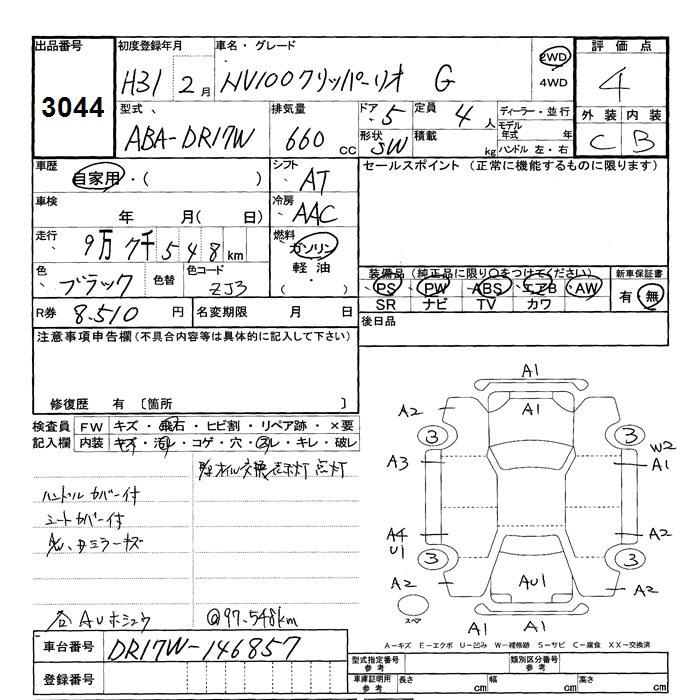 出品番号 初度登録年月 車名・グレード 評価点
3044 H31 2月 NV100クリッパーリオ G 2WD 4WD 4
型式 排気量 ドア 5 定員 4人 ディーラー・並行 外装 内装
ABA-DR17W 660cc 形状 5W 積載 kg モデル年式 年 ハンドル 左・右 C B
車歴 自家用・( ) シフト AT セールスポイント (正常に機能するものに限ります)
車検 年 月( 日) 冷房 AAC
走行 9万7千548km 燃料 ガソリン 軽油・( )
色 ブラック 色替 色コード ZJ3
装備品 (純正品に限り○をつけてください) 新車保証書
PS PW ABS エアB AW 有・無
SR ナビ TV カワ
R券 8.510円 名変期限 月 日 後日品
注意事項申告欄(不具合内容等は具体的に記入して下さい)
修復歴 有 [箇所 ]
検査員 FW キズ・飛石・ヒビ割・リペア跡・×要
記入欄 内装 キズ・汚レ・コゲ・穴・スレ・キレ・破レ
オイル交換表示灯 点灯
ハンドルカバー付
シートカバー付
ミラーキズ
各AUホシュウ @97.548km
A1
A2 A1 A2
3 3
A3 W2
A1
A4 A2
U1
3 3
A2 AU1 A2
スペア A1 A1
A-キズ E-エクボ U-凹み W-補修跡 S-サビ C-腐食 XX-交換済
車台番号 DR17W-146857
型式指定番号 参考 類別区分番号 参考
登録番号 車庫証明用 参考 長さ cm 幅 cm 高さ cm